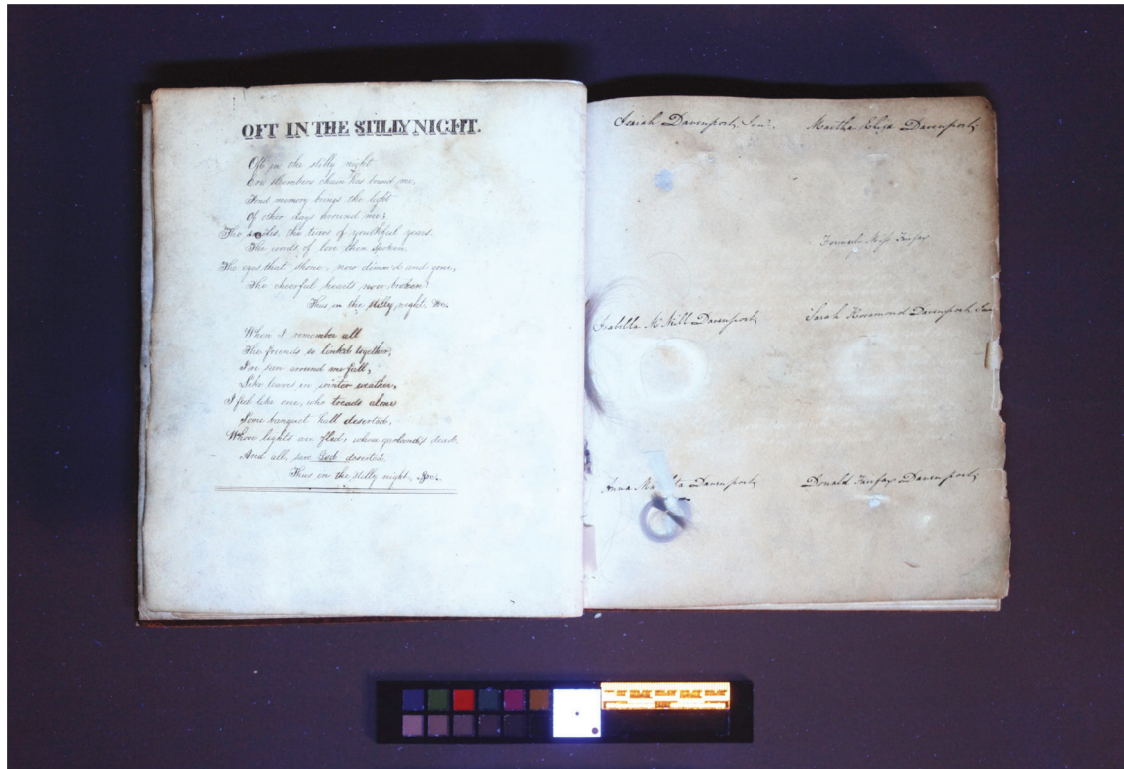 OFT IN THE STILLY NIGHT.
Oft in the stilly night
Ere slumbers chain has bound me,
Fond memory brings the light
Of other days around me;
The smiles, the tears of youthful years
The words, of love then spoken
The eyes that shone, now dimm'd and gone,
The cheerful hearts now broken!
Thus in the stilly night &c.
When I remember all
The friends so link'd together,
I've seen around me fall,
Like leaves in winter weather,
I feel like one, who treads alone
Some banquet hall deserted,
Whose lights are fled, whose garland's dead,
And all, save deserted.
Thus in the stilly night, &c.
Isaiah Davenport, Senr.
Martha Eliza Davenport,
Formerly Miss Fairfax
Isabella McNill Davenport,
Sarah Rosamond Davenport
Anna Davenport,
Donald Fairfax Davenport,